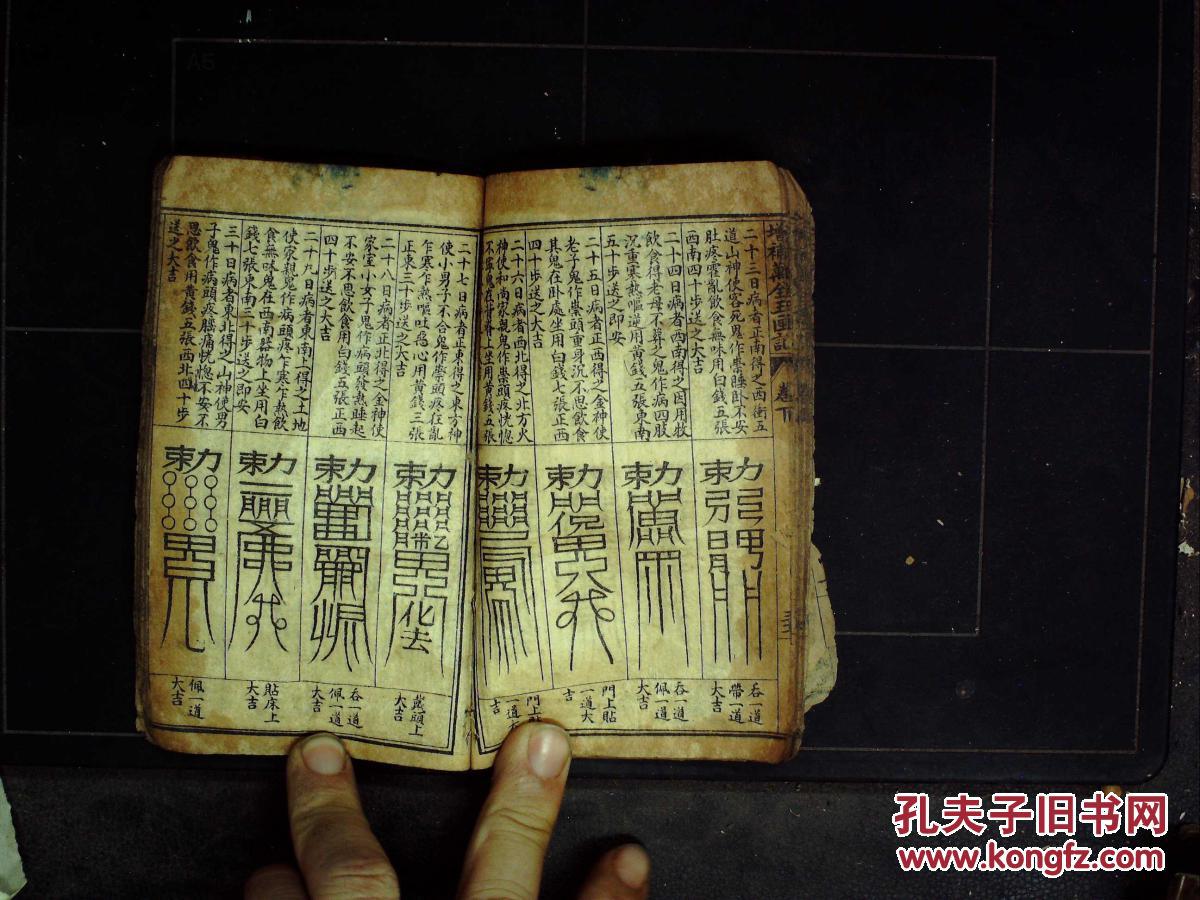 增補萬全玉匣記 卷下
二十三日病者正南得之西衝五
道山神使客死鬼作祟睡卧不安
肚疼霍亂飲食無味用白錢五張
西南四十步送之大吉
二十四日病者西南得之因用牧
飲食得老母不葬之鬼作病四肢
沉重寒熱嘔逆用黃錢五張東南
五十步送之即安
二十五日病者正西得之金神使
老子鬼作祟頭重身沉不思飲食
其鬼在卧處坐用白錢七張正西
四十步送之大吉
二十六日病者西北得之北方火
神使和尚家親鬼作祟頭疼恍惚
坐用黃錢五張
二十七日病者正東得之東方神
使小男子不合鬼作祟頭疼在亂
乍寒乍熱嘔吐惡心用黃錢三張
正東三十步送之大吉
二十八日病者正北得之金神使
家室小女子鬼作病頭發熱睡起
不安不思飲食用白錢五張正西
四十步送之大吉
二十九日病者東南上得之土地
使家親鬼作病頭疼乍寒乍熱飲
食無味鬼在西南器物上坐用白
錢七張東南三十步送之即安
三十日病者東北得之山神使男
子鬼作病頭疼腰痛恍惚不安不
思飲食用黃錢五張西北四十步
送之大吉
吞一道
帶一道
大吉
吞一道
佩一道
大吉
門上貼
一道大
吉
門上貼
一道大
吉
戴頭上
大吉
吞一道
佩一道
大吉
貼床上
大吉
佩一道
大吉
A5
孔夫子旧书网
www.kongfz.com